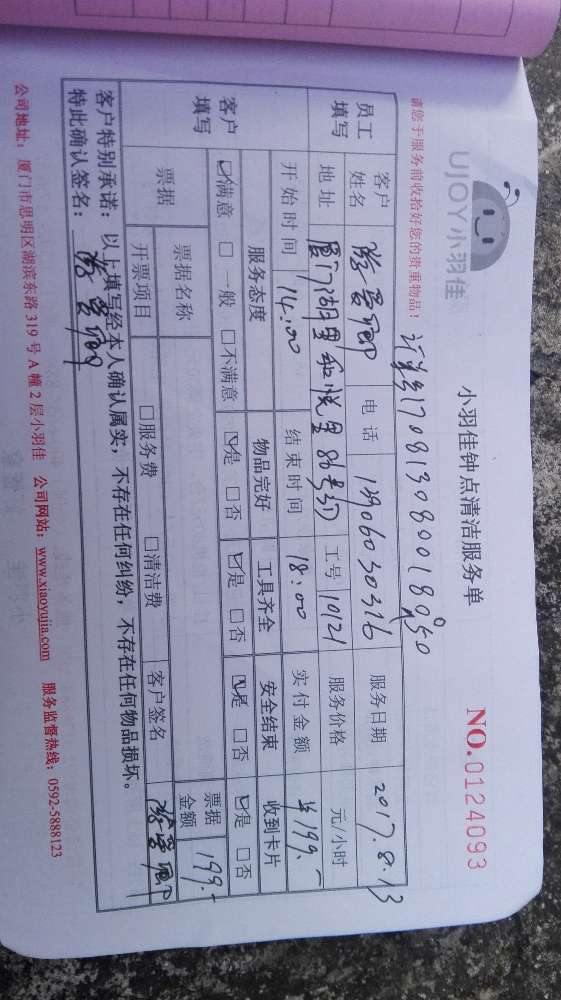 UJOY小羽佳
小羽佳钟点清洁服务单
NO.0124093
请您于服务前收拾好您的贵重物品！
员工填写 客户姓名 电话 13906030316 服务日期 2017.8.13
地址 工号 10121 服务价格 元/小时
开始时间 14:00 结束时间 18:00 实付金额 ￥199.-
客户填写 服务态度 物品完好 工具齐全 安全结束 收到卡片
☑满意 □一般 □不满意 ☑是 □否 ☑是 □否 ☑是 □否 ☑是 □否
票据 票据名称 票据金额 199.-
开票项目 □服务费 □清洁费 客户签名
客户特别承诺：以上填写经本人确认属实，不存在任何纠纷，不存在任何物品损坏。
特此确认签名：
公司地址：厦门市思明区湖滨东路319号A幢2层小羽佳 公司网站：www.xiaoyujia.com 服务监督热线：0592-5888123